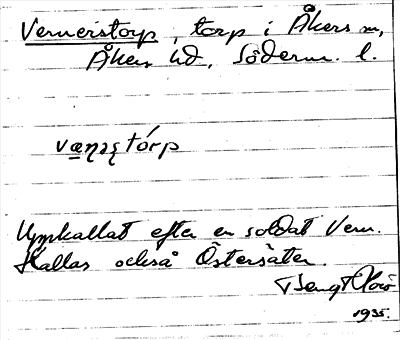 Vernerstorp, torp i Åkers sn,
Åkers hd, Söderm. l.
Uppkallat efter en soldat Vern.
Kallas också Östersäter.
Bengt
1935.